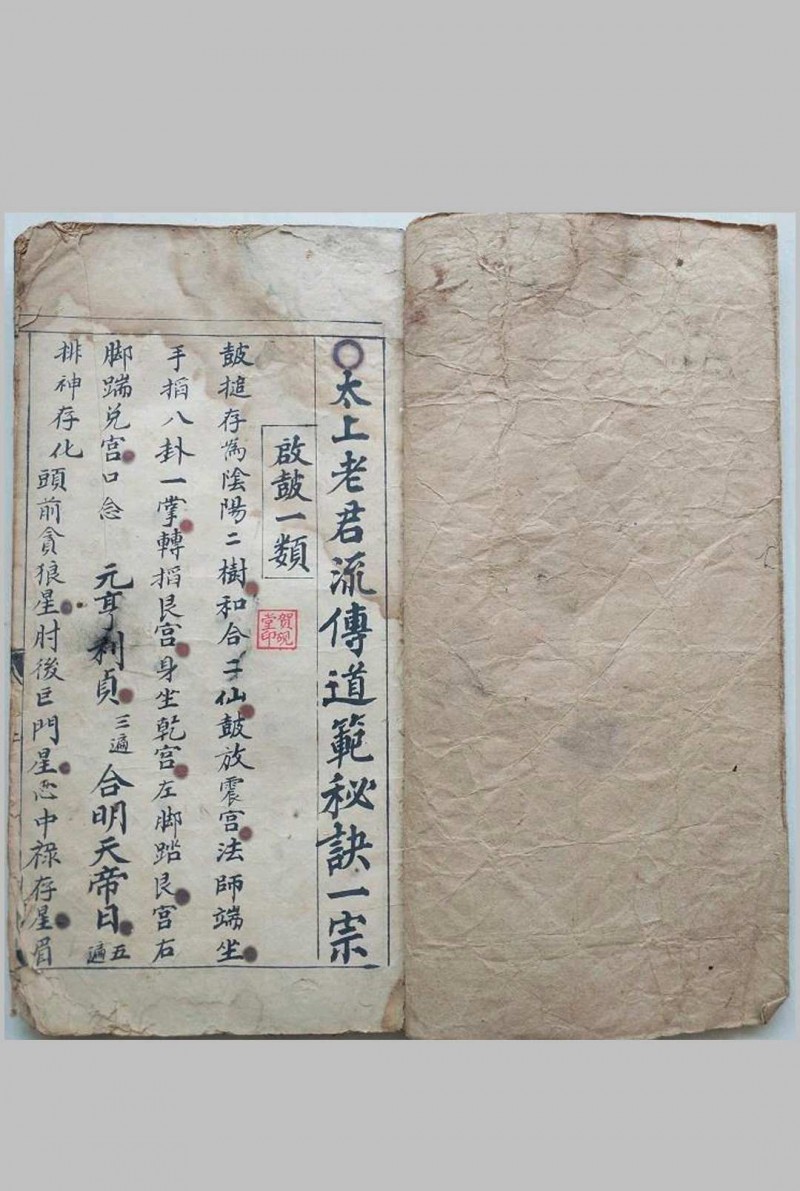 太上老君流傳道範秘訣一宗
啟鼓一類
鼓搥存為陰陽二樹和合二仙鼓放震宮法師端坐
手搯八卦一掌轉搯艮宮身坐乾宮左脚踏艮宮右
脚踹兌宮口念 元亨利貞三遍 合明天帝日五遍
排神存化頭前貪狼星肘後巨門星 中祿存星眉
賀硯堂印